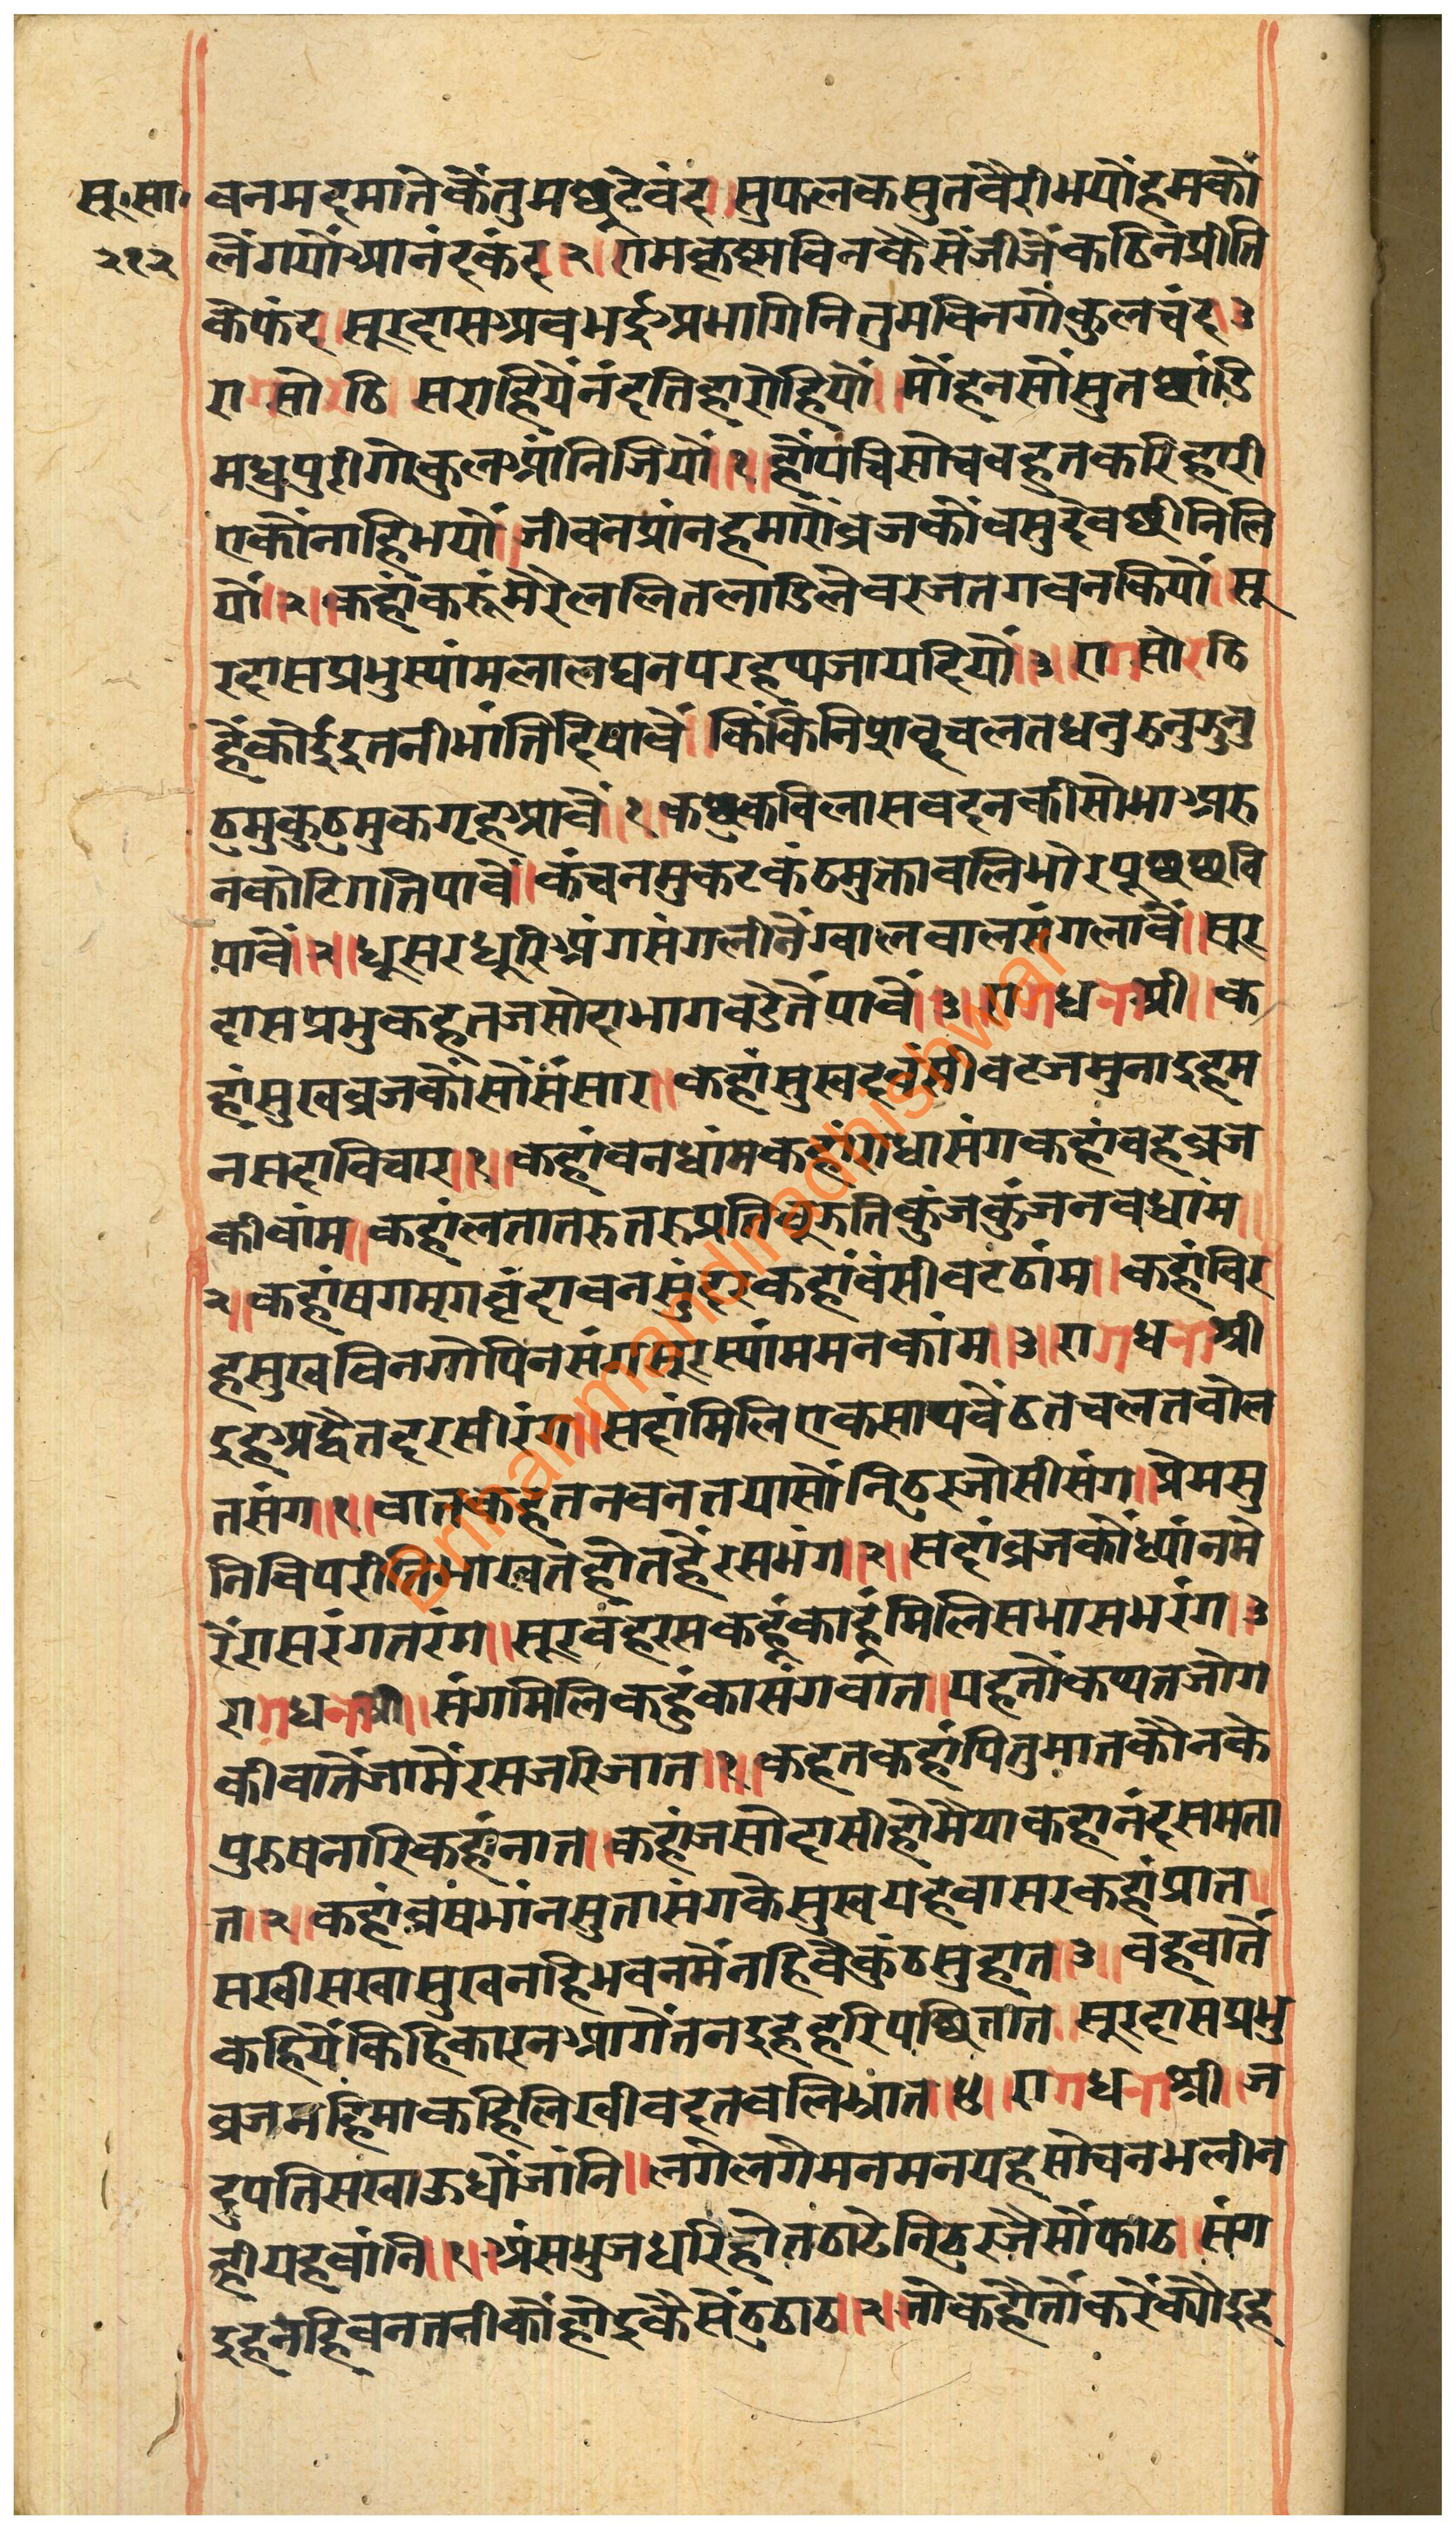 सू.सा. बनमदमातेकैंतुमछूटेवंद॥सुफलकसुतवैरीभयौंहमकौं
२१२ लैंगयौंआनंदकंद२॥रामकृष्णबिनकैसेंजीजेंकठिनप्रीति
केफंद॥सूरदासअबभईअभागिनितुमबिनगोकुलचंद३
रागसोरठि॥सराहियेनंदतिहारोहियौं॥मौंहनसौंसुतछांडि
मधुपुरीगोकुलआंनिजियौं॥१॥हौंपचिसोचबहुतकरिहारी
एकौंनाहिभयौं॥जीवनप्रांनहमारोंब्रजकौंवसुदेवछीनिलि
यौं॥२॥कहांकरूंमेरेललितलाडिलेबरजतगवनकियौं॥सू
रदासप्रभुस्यांमलालघनपरहथ्थजायदियौं॥३॥रागसोरठि
हैंकोईईतनीभांतिदिषावें॥किंकिंनिध्रुवचलतधनुरुनुझुनु
ठुमुकुठुमुकगृहआवें॥१॥कछुकविलासवदनकीसोभाअरु
नकोटिगतिपावें॥कंचनमुकटकंठमुक्तावलिमोरपूछछवि
पावें॥२॥धूसरधूरिअंगसंगलीनेंग्वालबालसंगलावें॥सूर
दासप्रभुकहतजसोदाभागबडेतेंपावें॥३॥रागधनाश्री॥क
हांसुखब्रजकौंसौंसंसार॥कहांसुखदबंसीवटजमुनाईहम
नसदाविचार॥१॥कहांवनधांमकहांराधासंगकहांवहब्रज
कीवांम॥कहांलतातरुतरुप्रतिझूरुतिकुंजकुंजनवधांम॥
२॥कहांषगमृगवृंदावनसुंदरकहांबंसीवटठांम॥कहांविर
हसुखबिनगोपिनसंगसूरस्यांममनकांम॥३॥रागधनाश्री
ईहअद्वैतदरसीरंग॥सदांमिलिएकसाथवैंठतचलतबोल
तसंग॥१॥बातकहतनबनतयासौंनिठुरजोसीसंग॥प्रेमसु
निविपरीतिभाखतहोतहैंरसभंग॥२॥सदांब्रजकौंध्यांनमे
रेंरासरंगतरंग॥सूरवंहरसकहूंकाहूंमिलिसभासभरंग॥३
रागधनाश्री॥संगमिलिकहुंकासंगबात॥यहतौंकथतजोग
कीबातेंजामेंरसजरिजात॥१॥कहतकहांपितुमातकौनके
पुरुषनारिकहांनात॥कहांजसोदासीहोमैयाकहानंदसमता
त॥२॥कहांव्रषंभांनसुतासंगकेसुखयहेवासरकहांप्रात॥
सखीसखासुखनहिभवनमेंनहिवैकुंठसुहात॥३॥वहबातें
कहियेंकिहिकारनआगेंतनईहहरिपछितात॥सूरदासप्रभु
ब्रजमहिमाकहिलिखीबदतबलिभ्रात॥४॥रागधनाश्री॥ज
दुपतिसखाऊधौंजांनि॥लगेलगेमनमनयहसोचनभलीन
हीयहबांनि॥१॥अंसभुजधरिहोतठाढेनिठुरजैसौंकाठ॥संग
ईहनहिबनतनीकौंहोईकैसेंठठाठ॥२॥जोकहौंतौंकरेंक्यौंईह